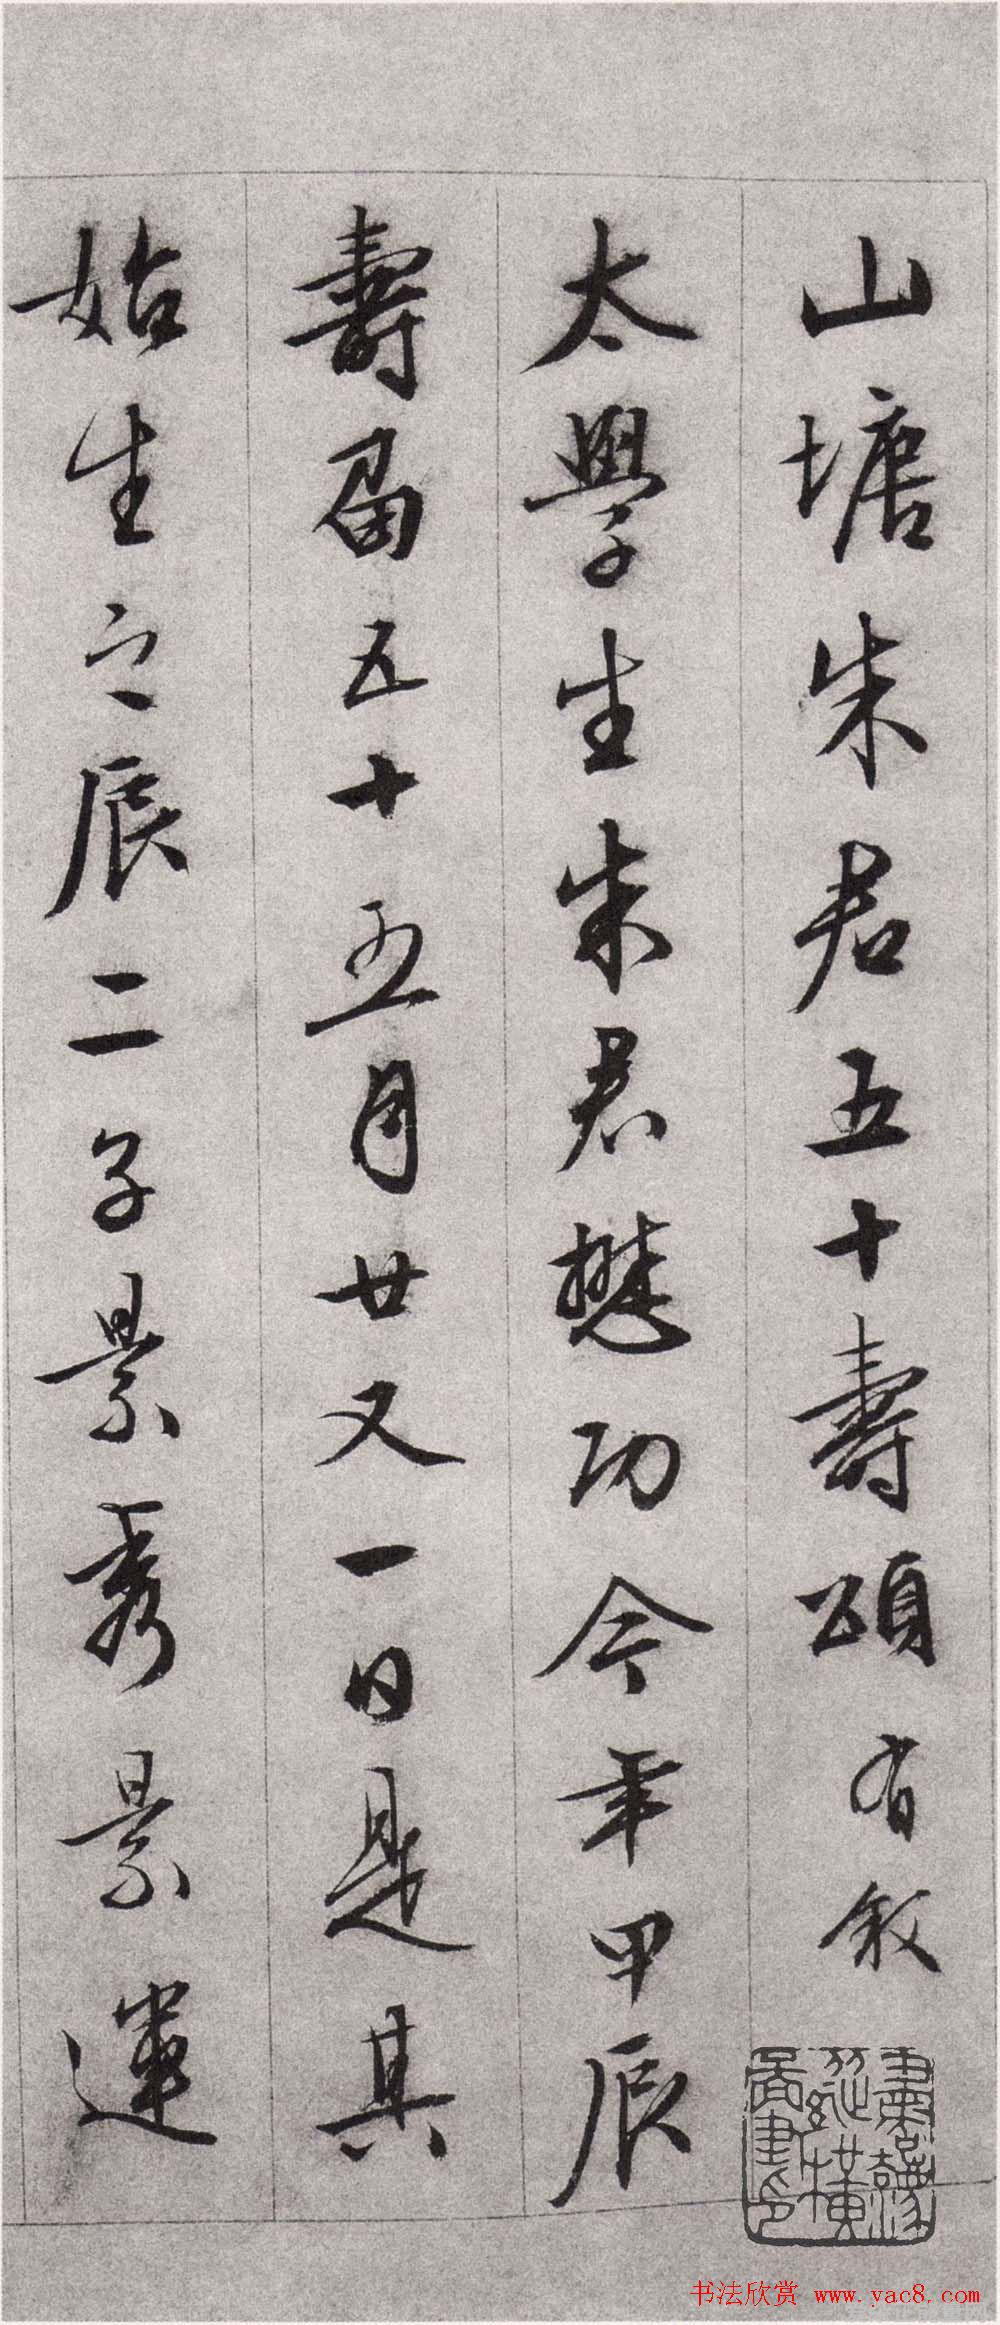 山塘朱君五十壽頌有叙
太學生朱君懋功今年甲辰
壽届五十五月廿又一日是其
始生之辰二子景秀景運
书法欣赏 www.yac8.com